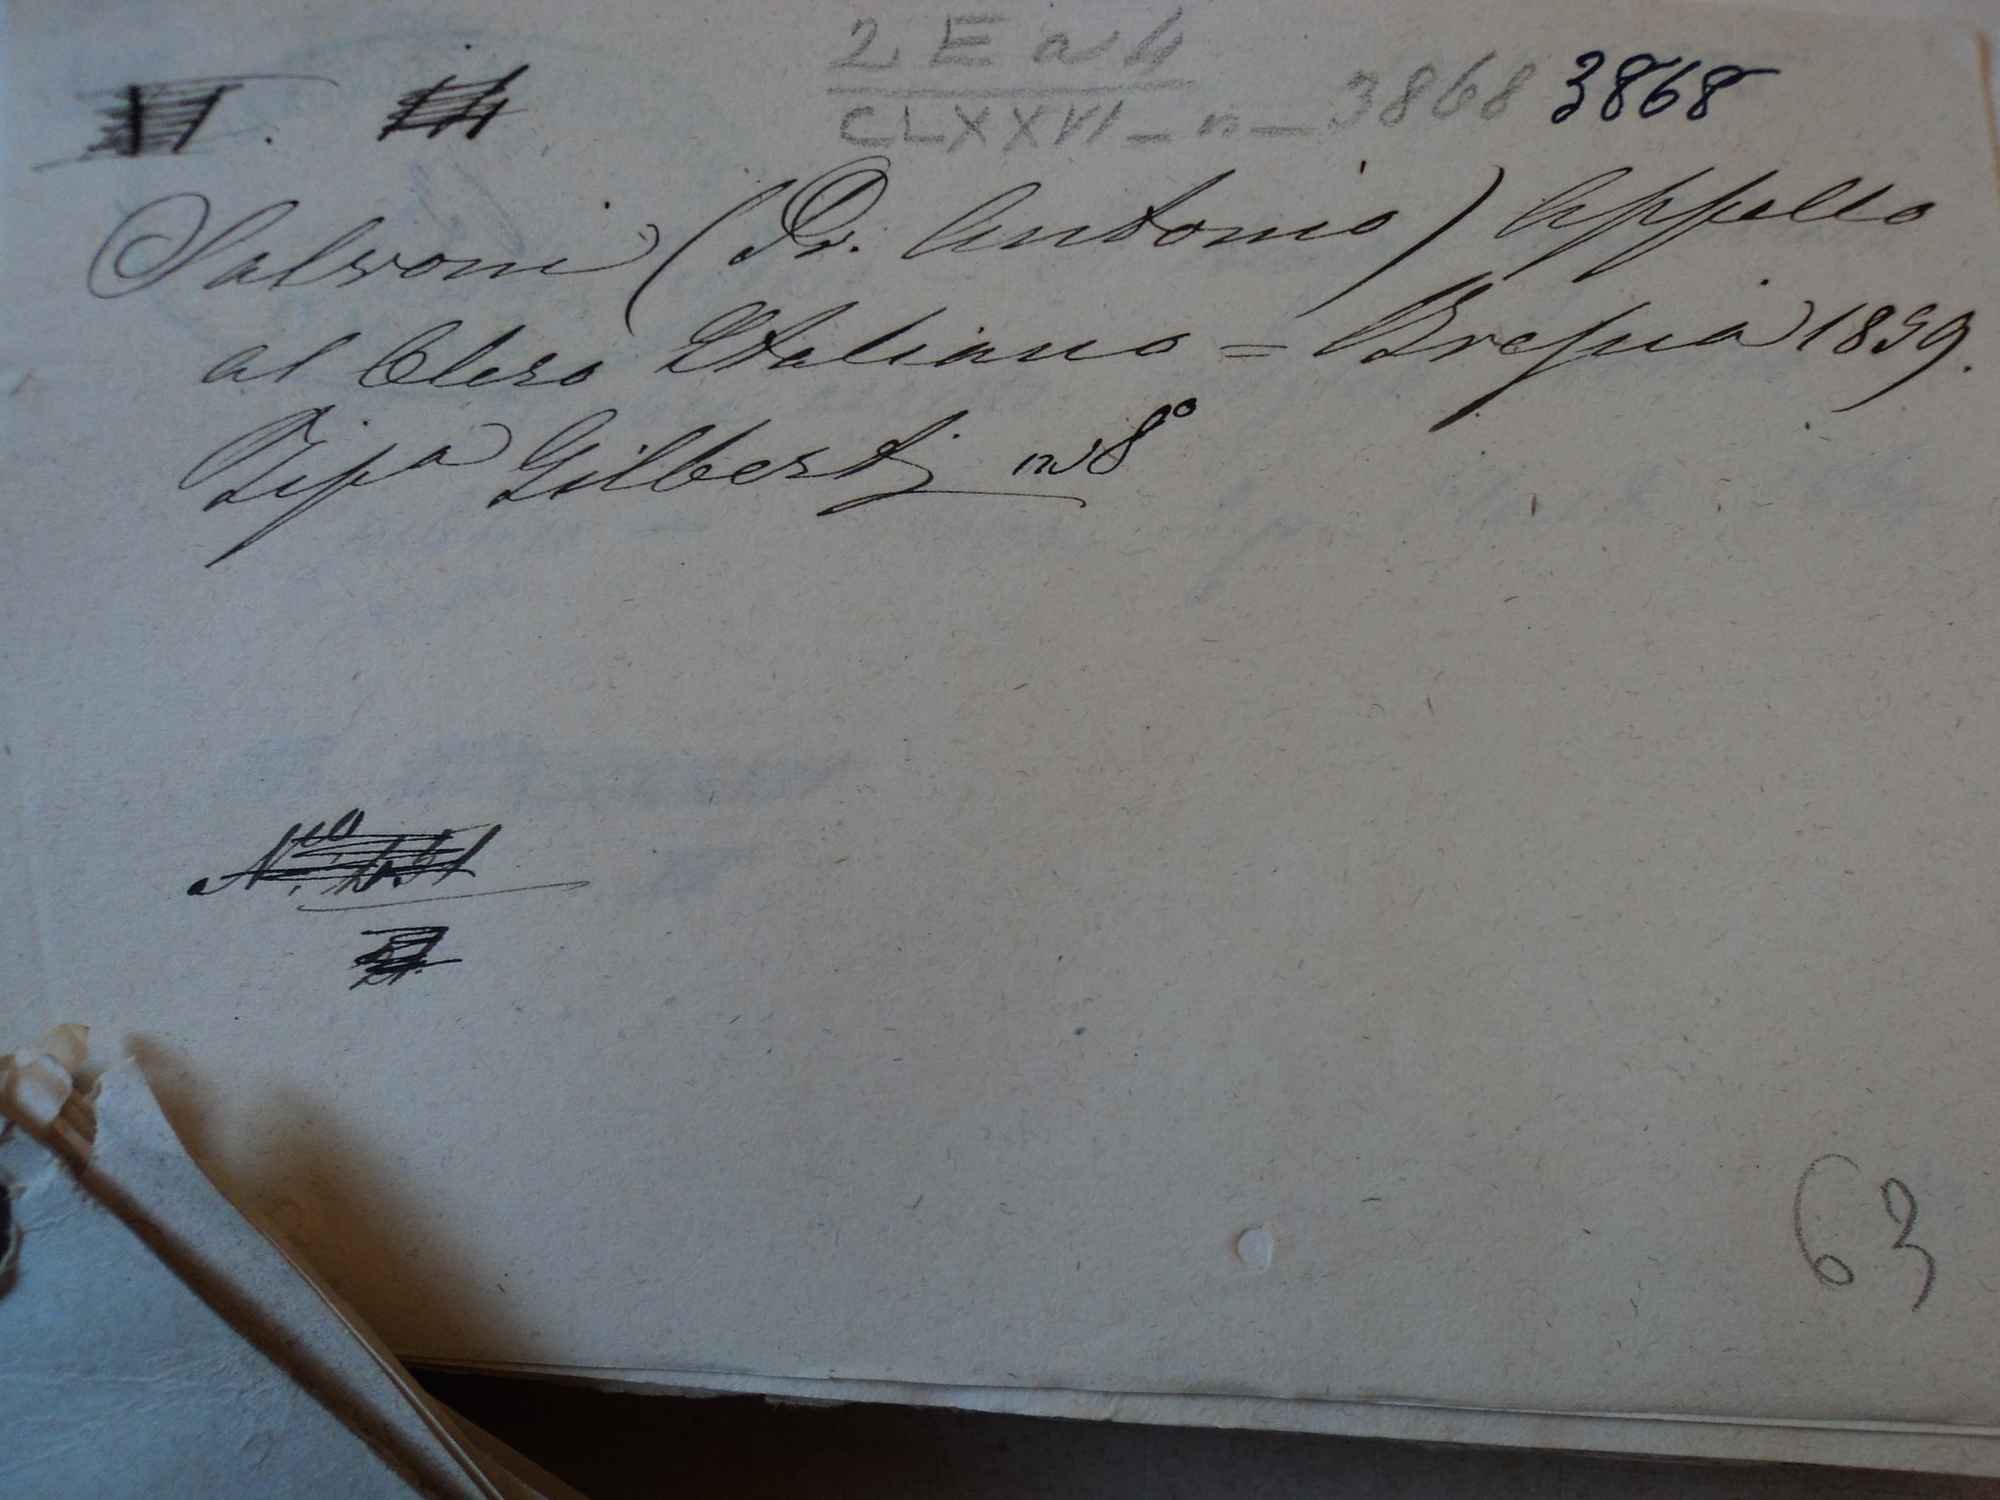 2 E a 4
CLXXVI - n - 3868 3868
Salvoni (Pr. Antonio) Appello
al Clero Italiano = Brescia 1859.
Tip.a Gilberti in 8°
63